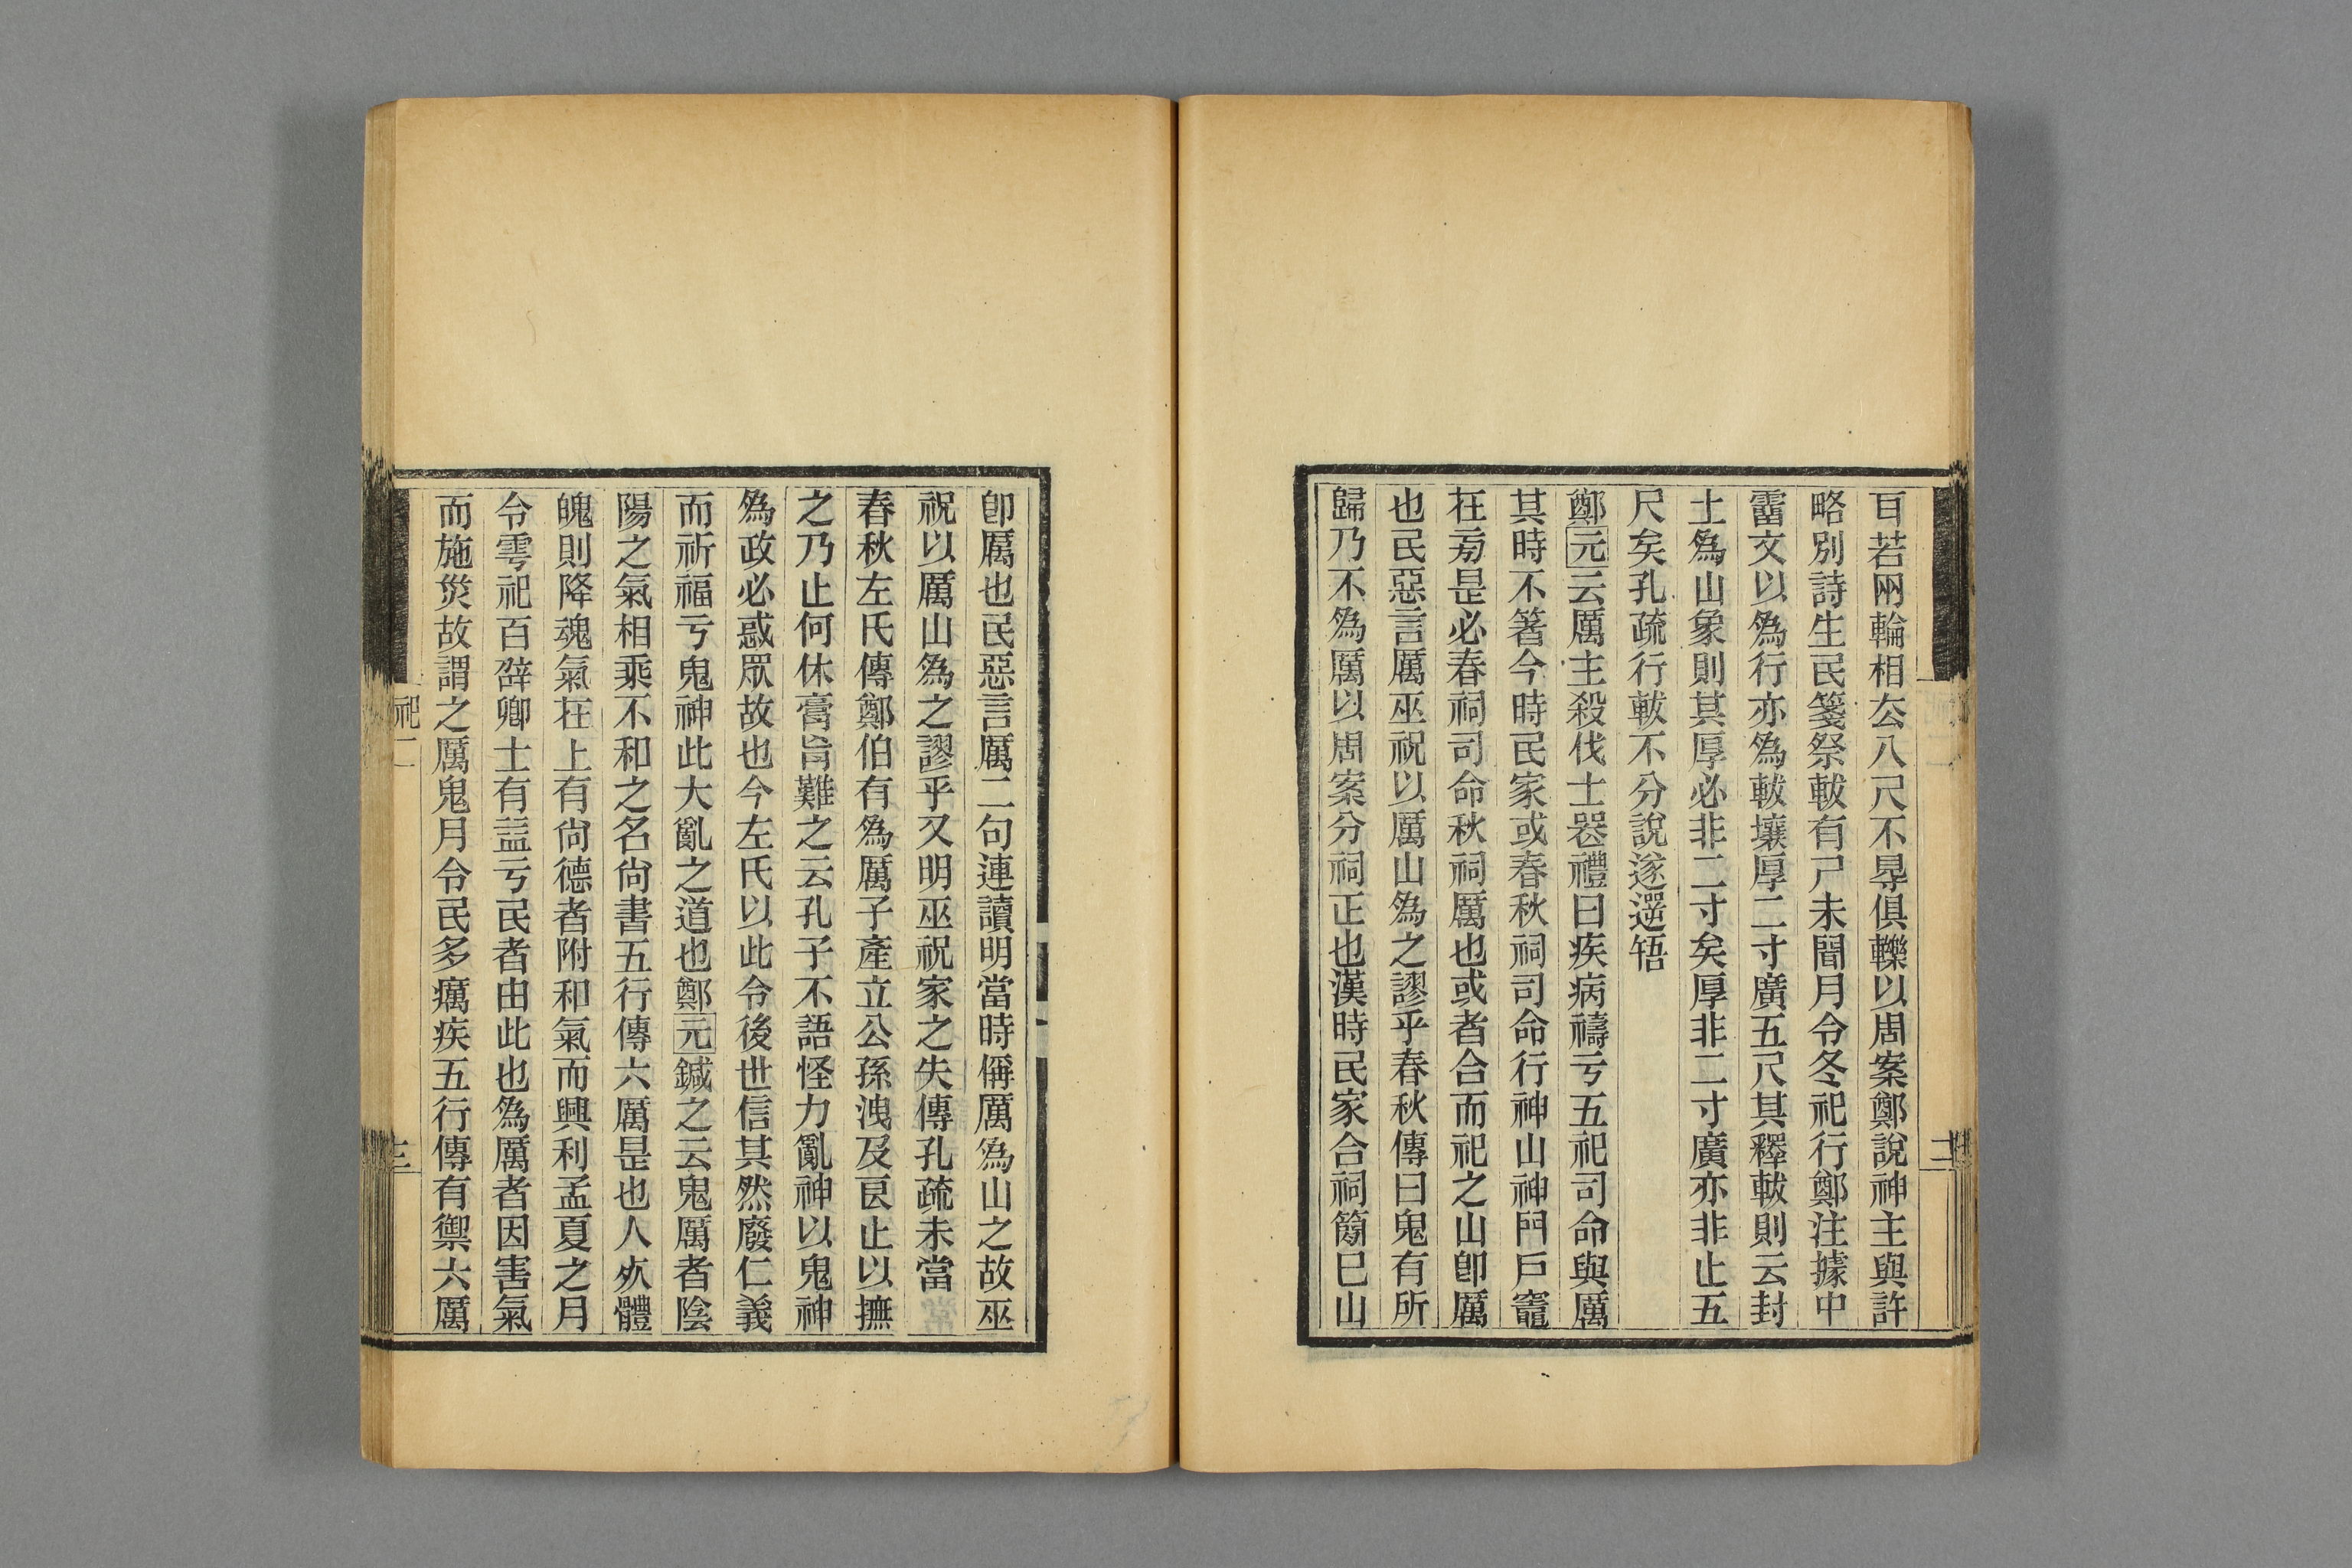 耳若兩輪相厺八尺不㝵俱轢以周案鄭說神主與許
略別詩生民箋祭軷有尸未聞月令冬祀行鄭注據中
霤文以爲行亦爲軷壤厚二寸廣五尺其釋軷則云封
土爲山象則其厚必非二寸矣厚非二寸廣亦非止五
尺矣孔疏行軷不分說遂遻啎
鄭元云厲主殺伐士器禮曰疾病禱亏五祀司命與厲
其時不箸今時民家或春秋祠司命行神山神門戶竈
在㫄是必春祠司命秋祠厲也或者合而祀之山卽厲
也民惡言厲巫祝以厲山爲之謬乎春秋傳曰鬼有所
歸乃不爲厲以周案分祠正也漢時民家合祠簡巳山
卽厲也民惡言厲二句連讀明當時偁厲爲山之故巫
祝以厲山爲之謬乎又明巫祝家之失傳孔疏未當
春秋左氏傳鄭伯有爲厲子產立公孫洩及良止以撫
之乃止何休膏肓難之云孔子不語怪力亂神以鬼神
爲政必惑眾故也今左氏以此令後世信其然廢仁義
而祈福亏鬼神此大亂之道也鄭元鍼之云鬼厲者陰
陽之氣相乘不和之名尙書五行傳六厲是也人㱙體
魄則降魂氣在上有尙德者附和氣而興利孟夏之月
令雩祀百辥卿士有益亏民者由此也爲厲者因害氣
而施災故謂之厲鬼月令民多癘疾五行傳有禦六厲
祀二
三
二